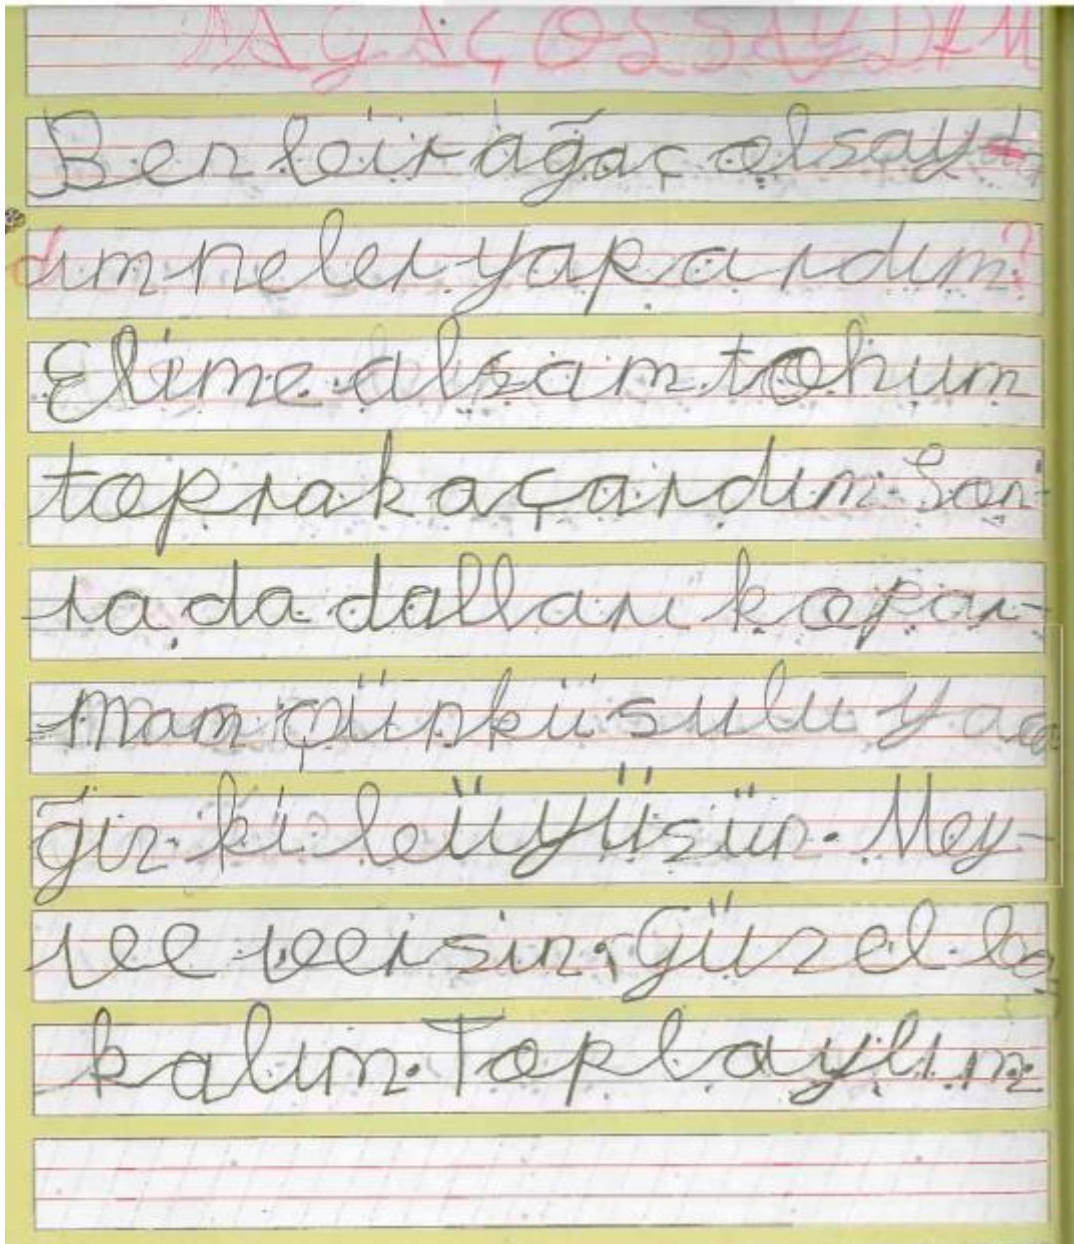 AĞAÇ OLSAYDIM
Ben bir ağaç olsay
dım neler yapardım?
Elime alsam tohum
toprak açardım. Son-
ra da dalları kopar-
mam çünkü sulu ya
ğız ki büyüsün. Mey-
ve versin, Güzel ba
kalım. Toplaylım